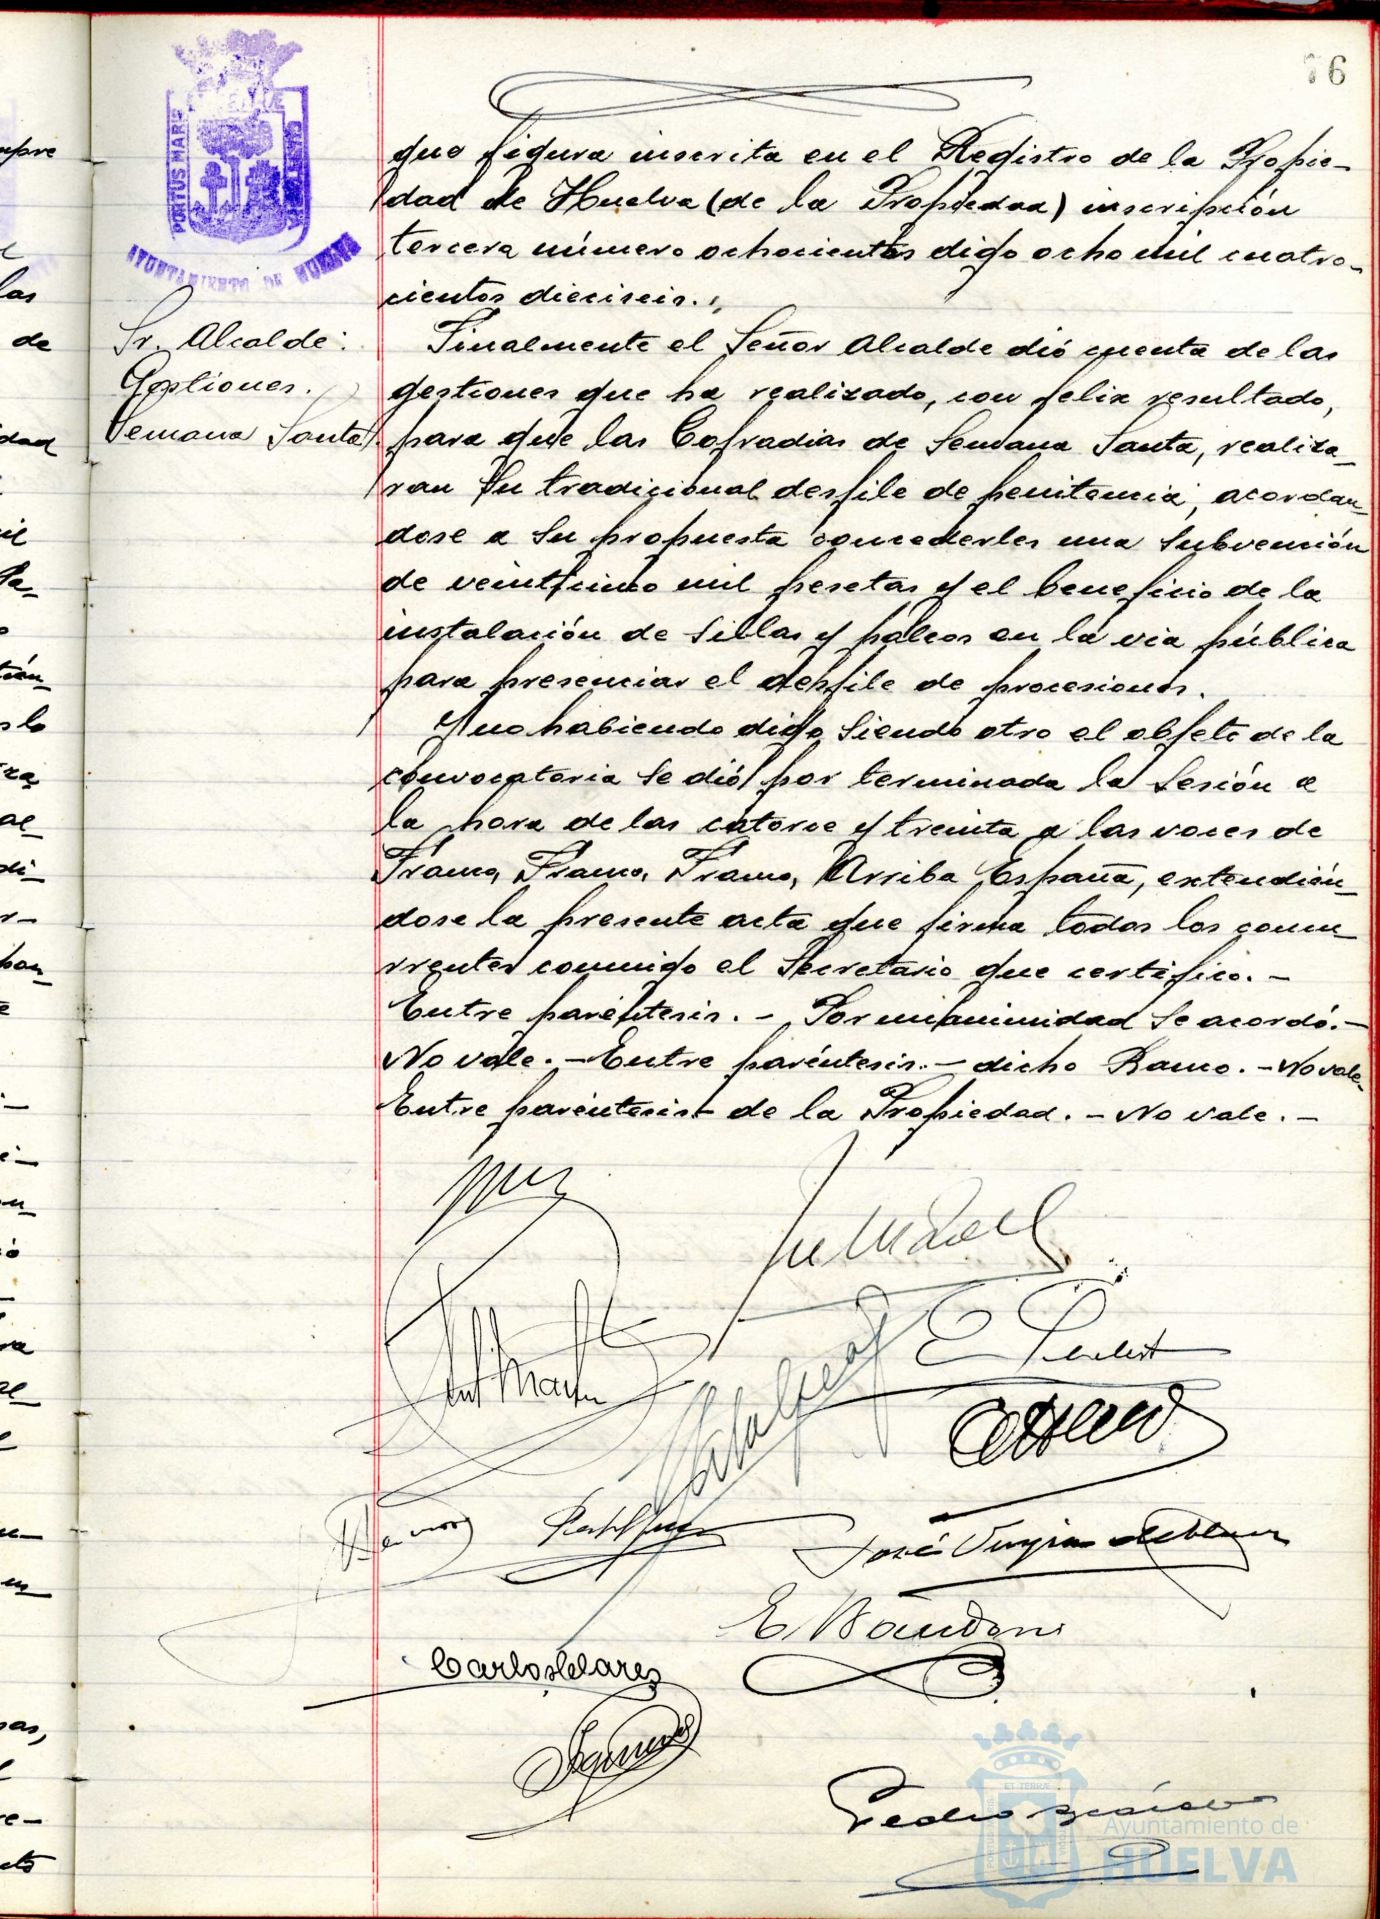 76
PORTUS MARIS
AYUNTAMIENTO DE HUELVA
que figura inscrita en el Registro de la Propie-
dad de Huelva (de la Propiedad) inscripción
tercera número ochocientos digo ocho mil cuatro-
cientos dieciseis.
Sr. Alcalde:
Gestiones.
Semana Santa.
Finalmente el Señor Alcalde dió cuenta de las
gestiones que ha realizado, con feliz resultado,
para que las Cofradias de Semana Santa, realiza-
ran su tradicional desfile de penitencia, acordan-
dose a su propuesta concederles una subvención
de veinticinco mil pesetas y el beneficio de la
instalación de sillas y palcos en la via pública
para presenciar el desfile de procesiones.
Y no habiendo digo siendo otro el objeto de la
convocatoria se dió por terminada la sesión a
la hora de las catorce y treinta a las voces de
Franco, Franco, Franco, Arriba España, extendién-
dose la presente acta que firma todos los concu-
rrentes conmigo el Secretario que certifico. -
Entre paréntesis. - Por unanimidad se acordó. -
No vale. - Entre paréntesis. - dicho Ramo. - No vale.
Entre paréntesis - de la Propiedad. - No vale. -
José
Carlos
Pedro
ET TERRÆ
Ayuntamiento de
HUELVA